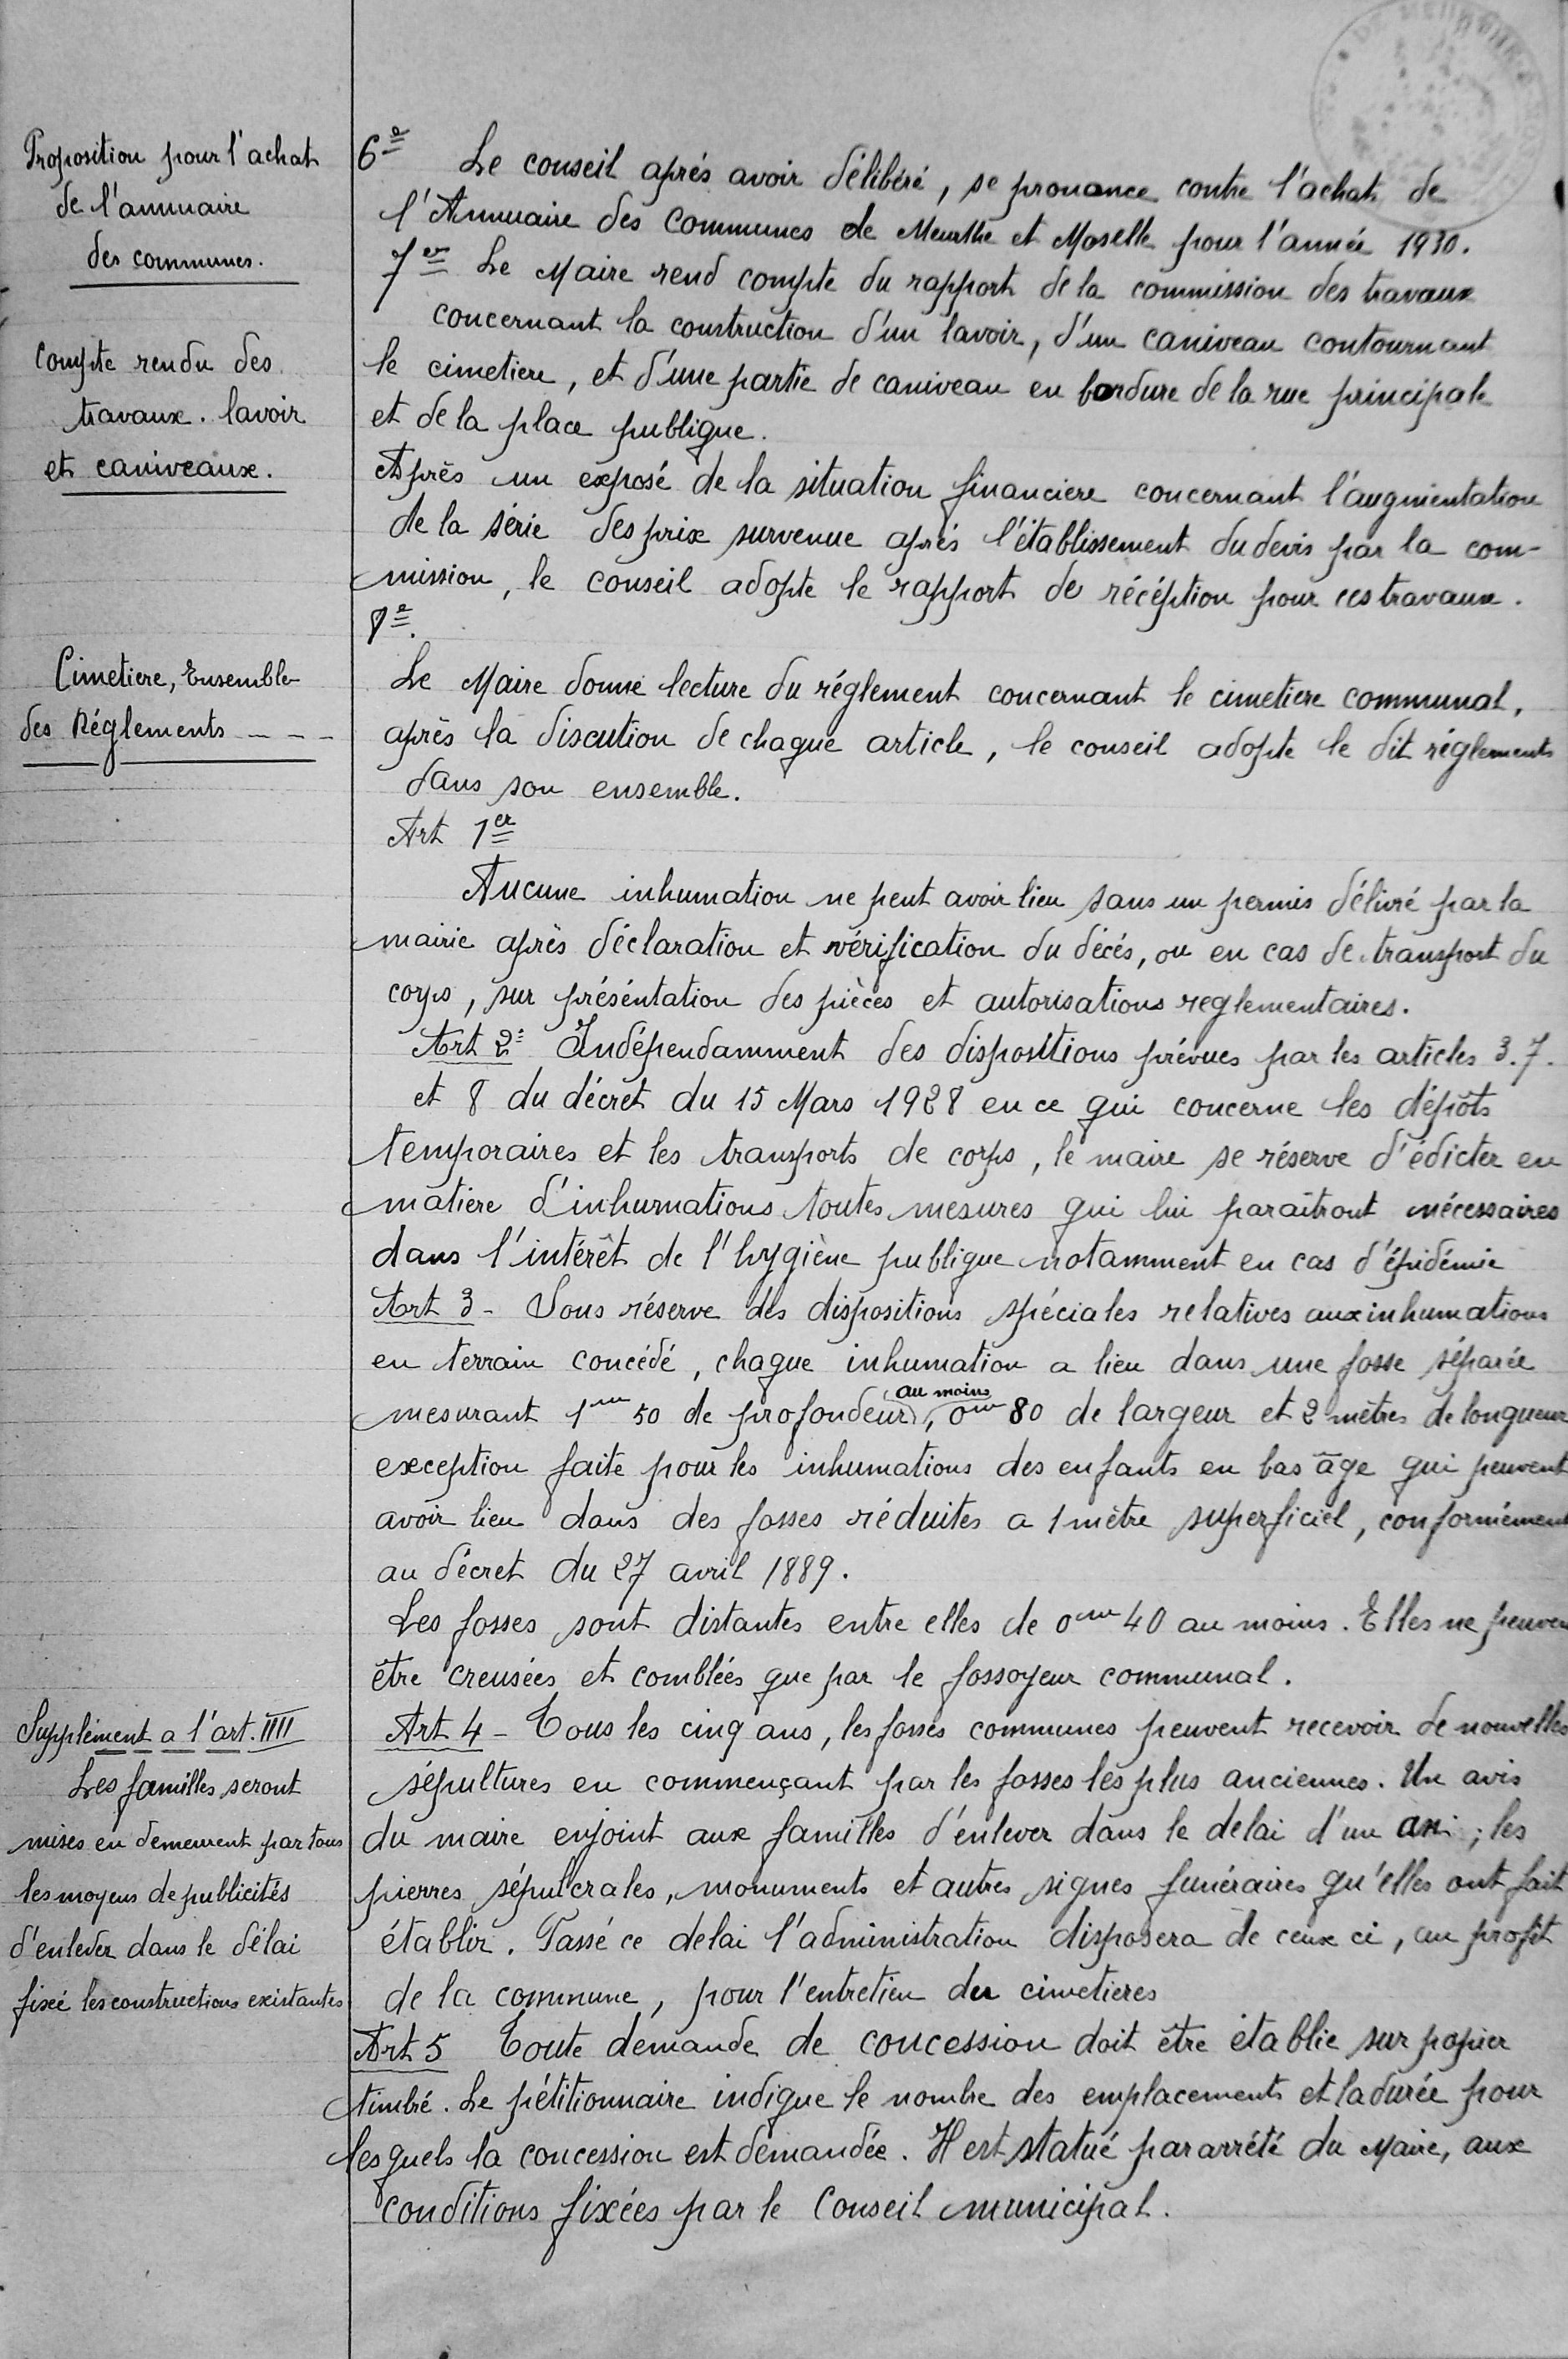 Proposition pour l'achat
de l'annuaire
des communes.
6e Le conseil aprés avoir délibéré, se pronance contre l'achat de
l'Annuaire des Communes de Meurthe et Moselle pour l'année 1930.
7e Le Maire rend compte du rapport de la commission des travaux
concernant la construction d'un lavoir, d'un caniveau contournant
le cimetiere, et d'une partie de caniveau en bordure de la rue principale
et de la place publique.
compte rendu des
travaux. lavoir
et caniveaux.
Après un exposé de la situation financiere concernant l'augmentation
de la série des prix survenue aprés l'établissement du devis par la com-
mission, le conseil adopte le rapport de récéption pour ces travaux.
8e.
Cimetiere, Ensemble
des Réglements - - -
Le Maire donne lecture du réglement concernant le cimetiere communal,
après la discution de chaque article, le conseil adopte le dit réglements
dans son ensemble.
Art 1er
Aucune inhumation ne peut avoir lieu sans un permis délivré par la
mairie après déclaration et vérification du décés, ou en cas de transport du
corps, sur préséntation des pièces et autorisations reglementaires.
Art 2: Indépendamment des dispositions prévues par les articles 3.7.
et 8 du décret du 15 Mars 1928 en ce qui concerne les dépôts
temporaires et les transports de corps, le maire se réserve d'édicter en
matiere d'inhumations toutes mesures qui lui paraîtront nécessaires
dans l'intérêt de l'hygiène publique notamment en cas d'épidémie
Art 3 - Sous réserve des dispositions spéciales relatives aux inhumations
en terrain concédé, chaque inhumation a lieu dans une fosse séparée
au moins
mesurant 1m 50 de profondeur, 0m 80 de largeur et 2 mètres de longueur
exception faite pour les inhumations des enfants en bas âge qui peuvent
avoir lieu dans des fosses réduites a 1 mètre superficiel, conformément
au décret du 27 avril 1889.
Les fosses sont distantes entre elles de 0m 40 au moins. Elles ne peuven
être creusées et comblées que par le fossoyeur communal.
Supplément a l'art. IIII
Les familles seront
mises en demeurent par tous
les moyens de publicités
d'enlever dans le délai
fixé les constructions existantes
Art 4 - Tous les cinq ans, les fosses communes peuvent recevoir de nouvelles
sépultures en commençant par les fosses les plus anciennes. Un avis
du maire enjoint aux familles d'enlever dans le delai d'un an; les
pierres sépulcrales, monuments et autres signes funéraires qu'elles ont fait
établir. Passé ce delai l'administration disposera de ceux ci, au profit
de la commune, pour l'entretien du cimetieres
Art 5 Toute demande de concession doit être établie sur papier
timbré. Le pétitionnaire indique le nombre des emplacements et la durée pour
lesquels la concession est demandée. Il est statué par arrêté du Maire, aux
conditions fixées par le Conseil municipal.